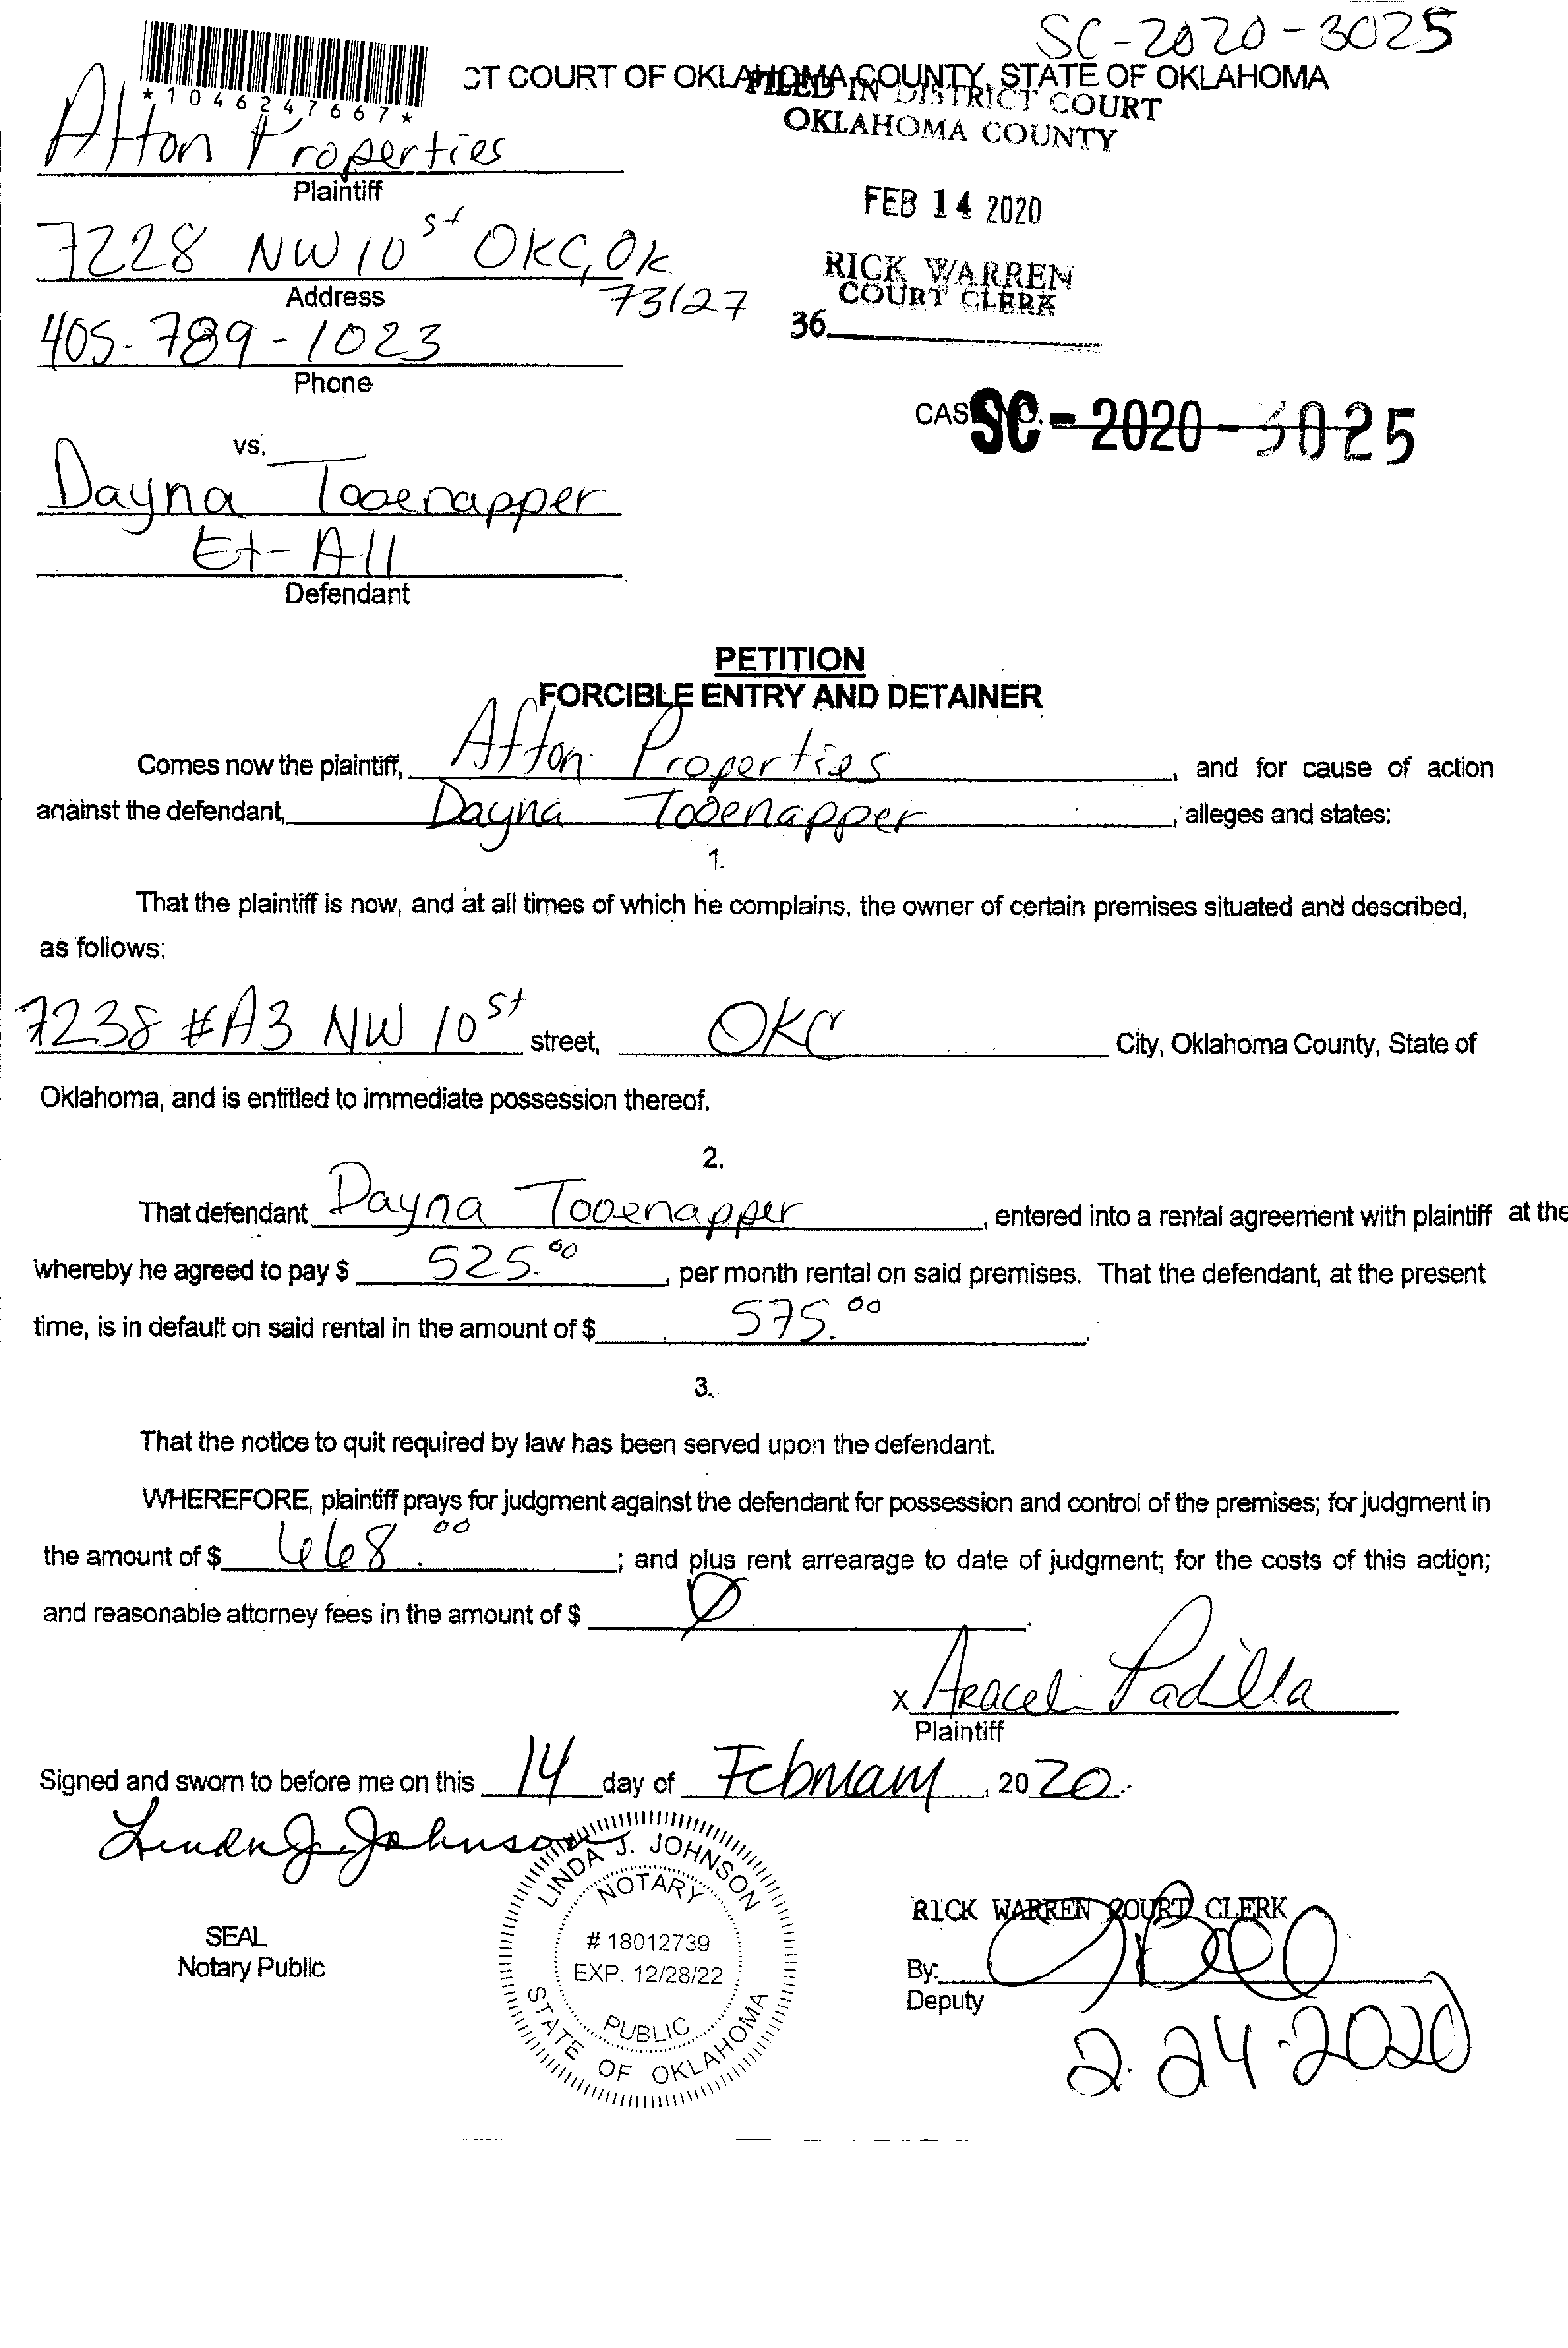 SC-2020-3025
CT COURT OF OKLAHOMA COUNTY, STATE OF OKLAHOMA
FILED IN DISTRICT COURT
OKLAHOMA COUNTY
*1046247667*
Afton Properties
Plaintiff
FEB 14 2020
7228 NW 10 st OKC, OK
73127
Address
RICK WARREN
COURT CLERK
36
405-789-1023
Phone
CAS SC-2020-3025
vs.
Dayna Tooenapper
Et-All
Defendant
PETITION
FORCIBLE ENTRY AND DETAINER
Comes now the plaintiff, Afton Properties, and for cause of action
against the defendant, Dayna Tooenapper, alleges and states:
1.
That the plaintiff is now, and at all times of which he complains, the owner of certain premises situated and described,
as follows:
7238 #A3 NW 10 st street, OKC City, Oklahoma County, State of
Oklahoma, and is entitled to immediate possession thereof.
2.
That defendant Dayna Tooenapper, entered into a rental agreement with plaintiff at the
whereby he agreed to pay $ 525.00, per month rental on said premises. That the defendant, at the present
time, is in default on said rental in the amount of $ 575.00.
3.
That the notice to quit required by law has been served upon the defendant.
WHEREFORE, plaintiff prays for judgment against the defendant for possession and control of the premises; for judgment in
the amount of $ 668.00; and plus rent arrearage to date of judgment; for the costs of this action;
and reasonable attorney fees in the amount of $ Ø.
x Araceli Padilla
Plaintiff
Signed and sworn to before me on this 14 day of February, 2020.
Linda J. Johnson
LINDA J. JOHNSON
NOTARY
# 18012739
EXP. 12/28/22
PUBLIC
STATE OF OKLAHOMA
SEAL
Notary Public
RICK WARREN COURT CLERK
By:
Deputy
2.24.2020